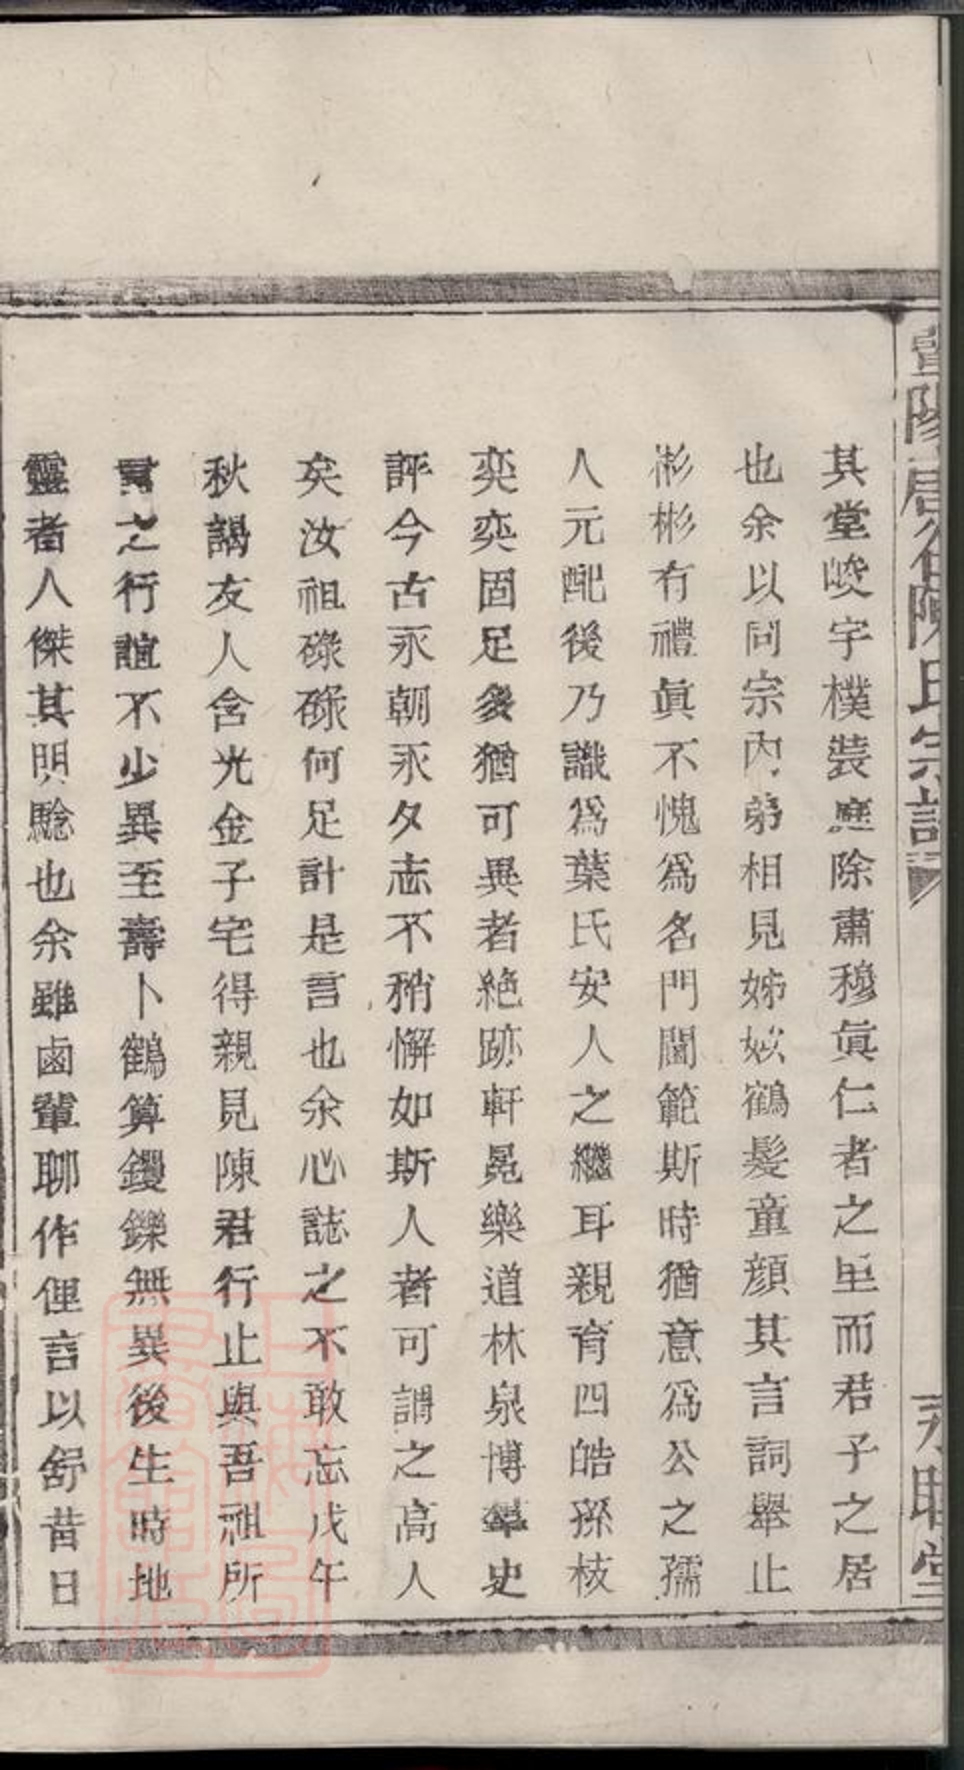 暨陽唐谷陳氏宗譜
永聰堂
其堂峻宇樸裝應除肅穆眞仁者之里而君子之居
也余以同宗內弟相見姊妐鶴髮童顏其言詞舉止
彬彬有禮眞不愧爲名門閫範斯時猶意爲公之孺
人元配後乃識爲葉氏安人之繼耳親育四皓孫枝
奕奕固足多猶可異者絶跡軒冕樂道林泉博羣史
評今古永朝永夕志不稍懈如斯人者可謂之高人
矣汝祖碌碌何足計是言也余心誌之不敢忘戊午
秋謁友人含光金子宅得親見陳君行止與吾祖所
言之行誼不少異至壽卜鶴算鑁鑠無異後生時地
靈者人傑其明騐也余雖鹵輩聊作俚言以舒昔日